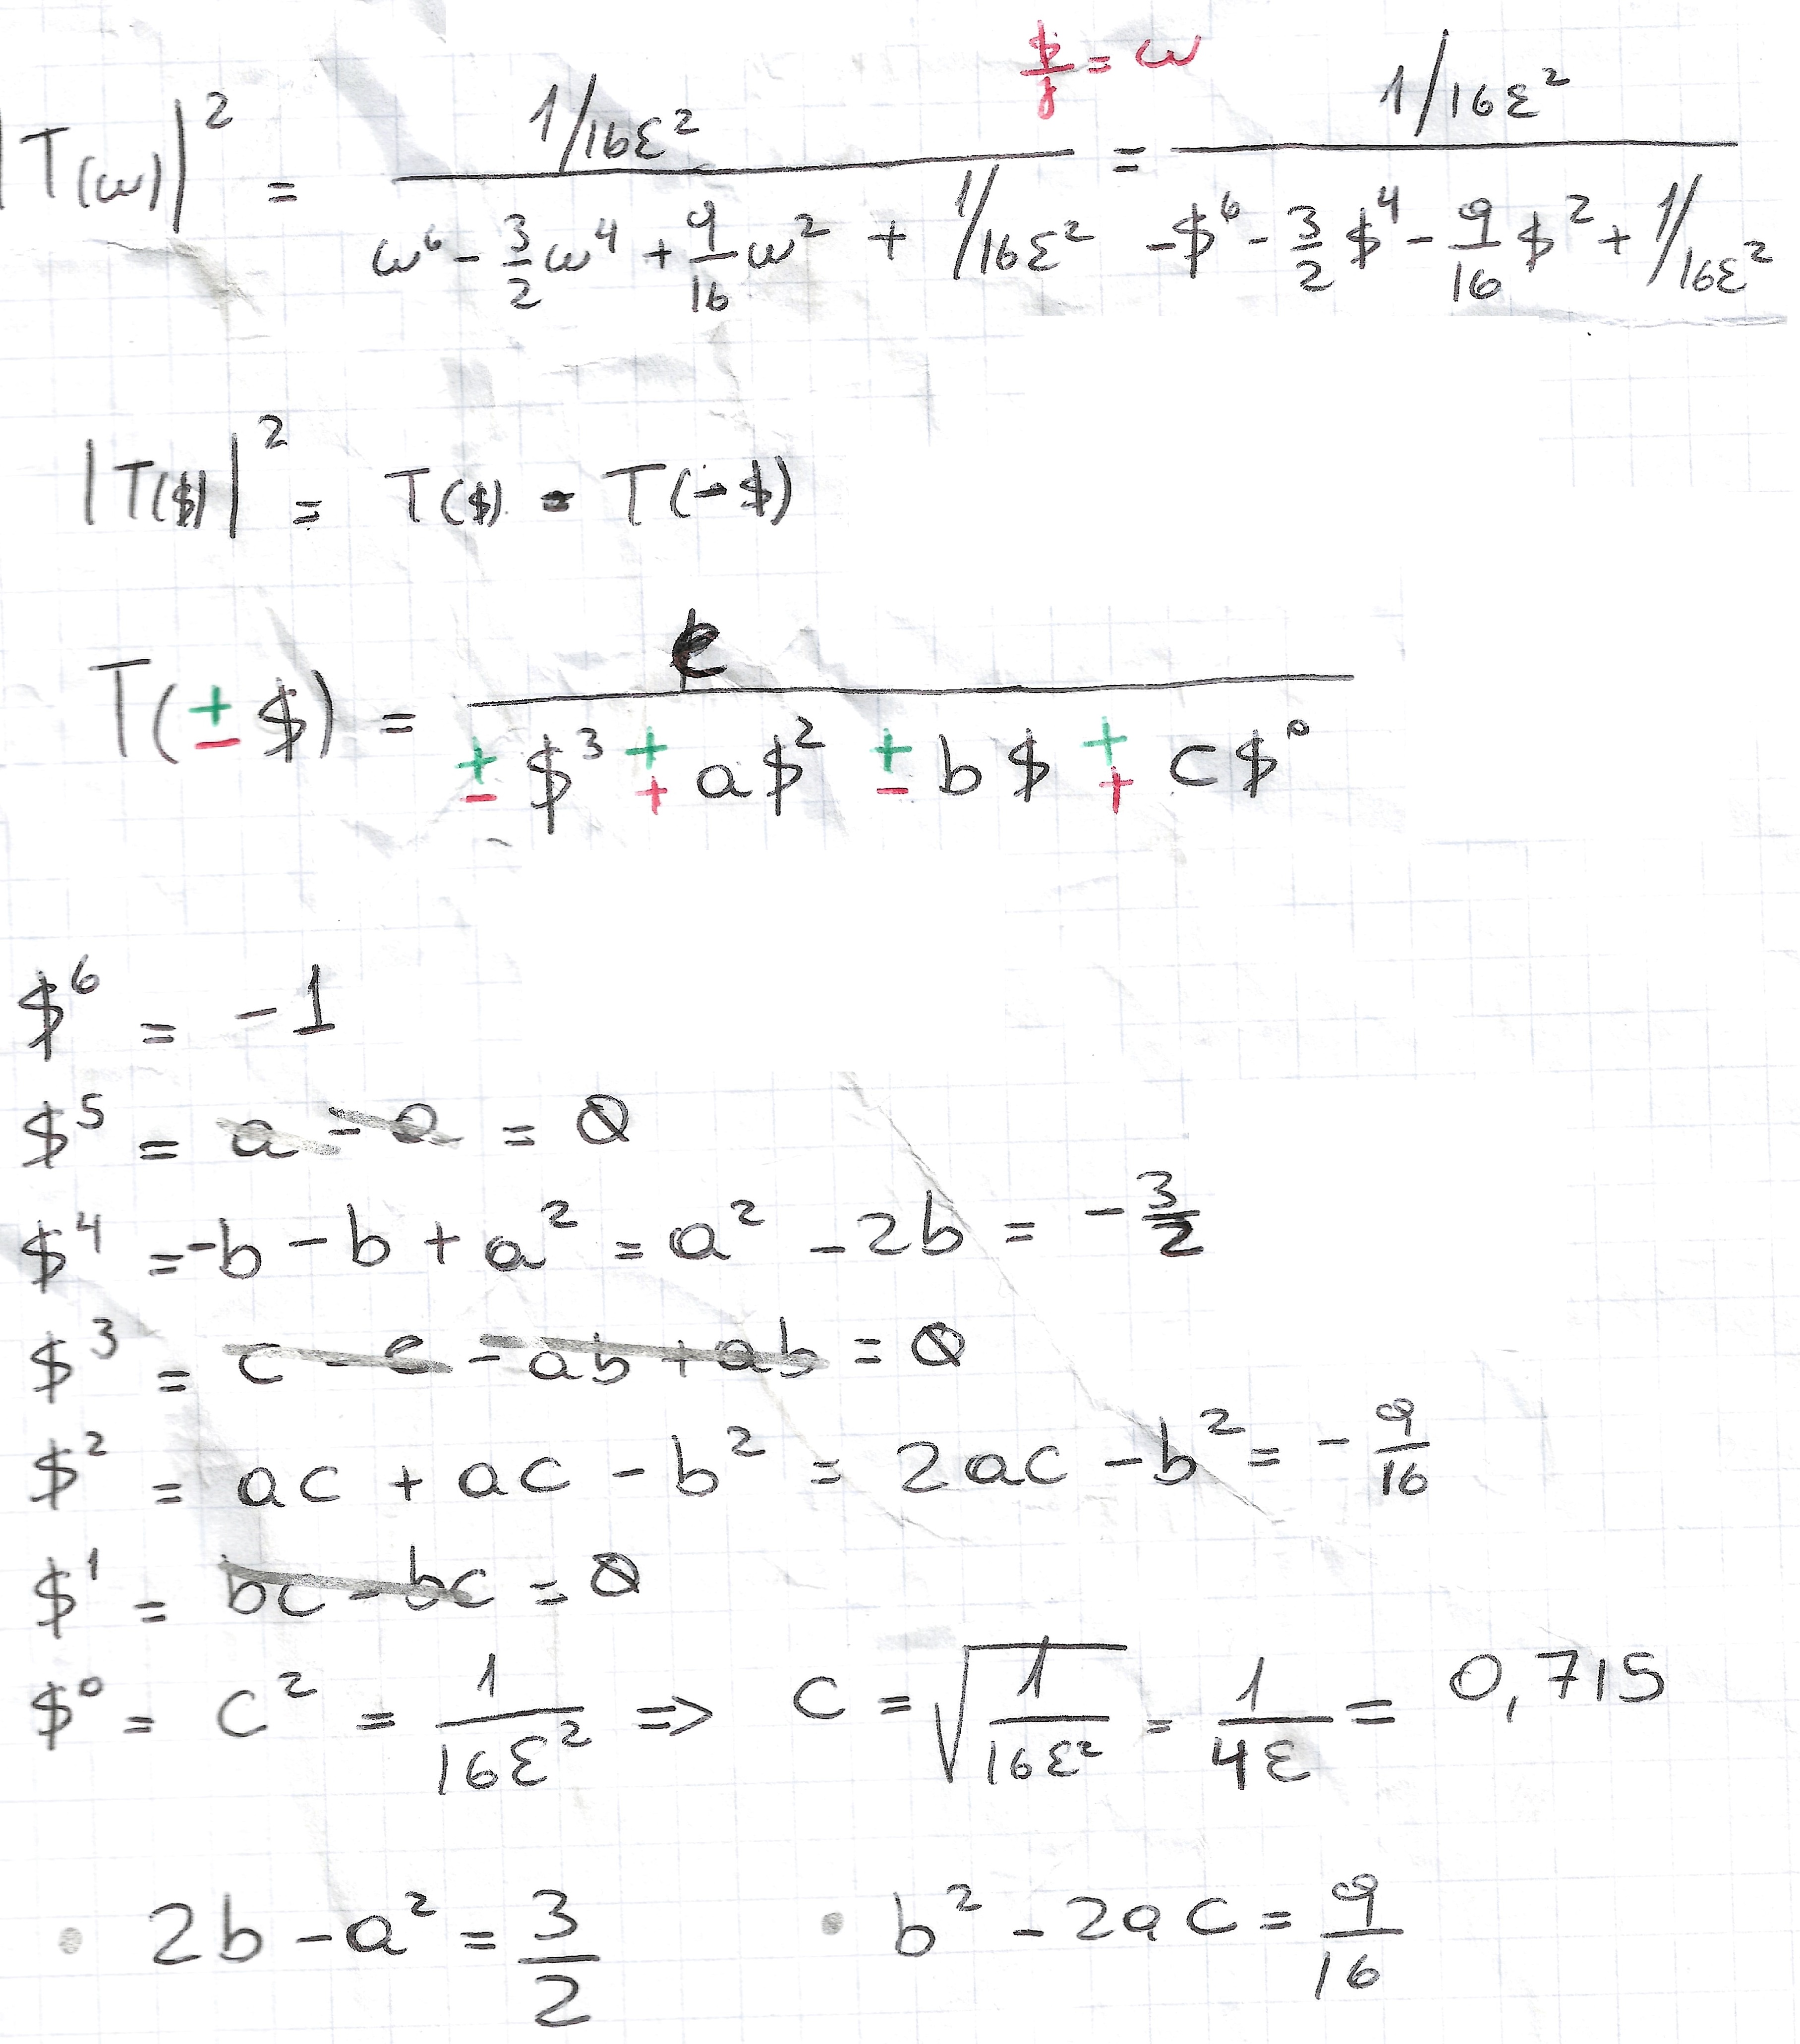 $/j = ω
|T(ω)|² = (1/16ε²) / (ω⁶ - 3/2 ω⁴ + 9/16 ω² + 1/16ε²) = (1/16ε²) / (-$⁶ - 3/2 $⁴ - 9/16 $² + 1/16ε²)
|T($)|² = T($) · T(-$)
T(± $) = c / (± $³ + a$² ± b $ + c$⁰)
$⁶ = -1
$⁵ = a - a = 0
$⁴ = -b - b + a² = a² - 2b = - 3/2
$³ = c - c - ab + ab = 0
$² = ac + ac - b² = 2ac - b² = - 9/16
$¹ = bc - bc = 0
$⁰ = c² = 1/16ε² ⇒ c = √(1/16ε²) = 1/4ε = 0,715
• 2b - a² = 3/2 • b² - 2ac = 9/16